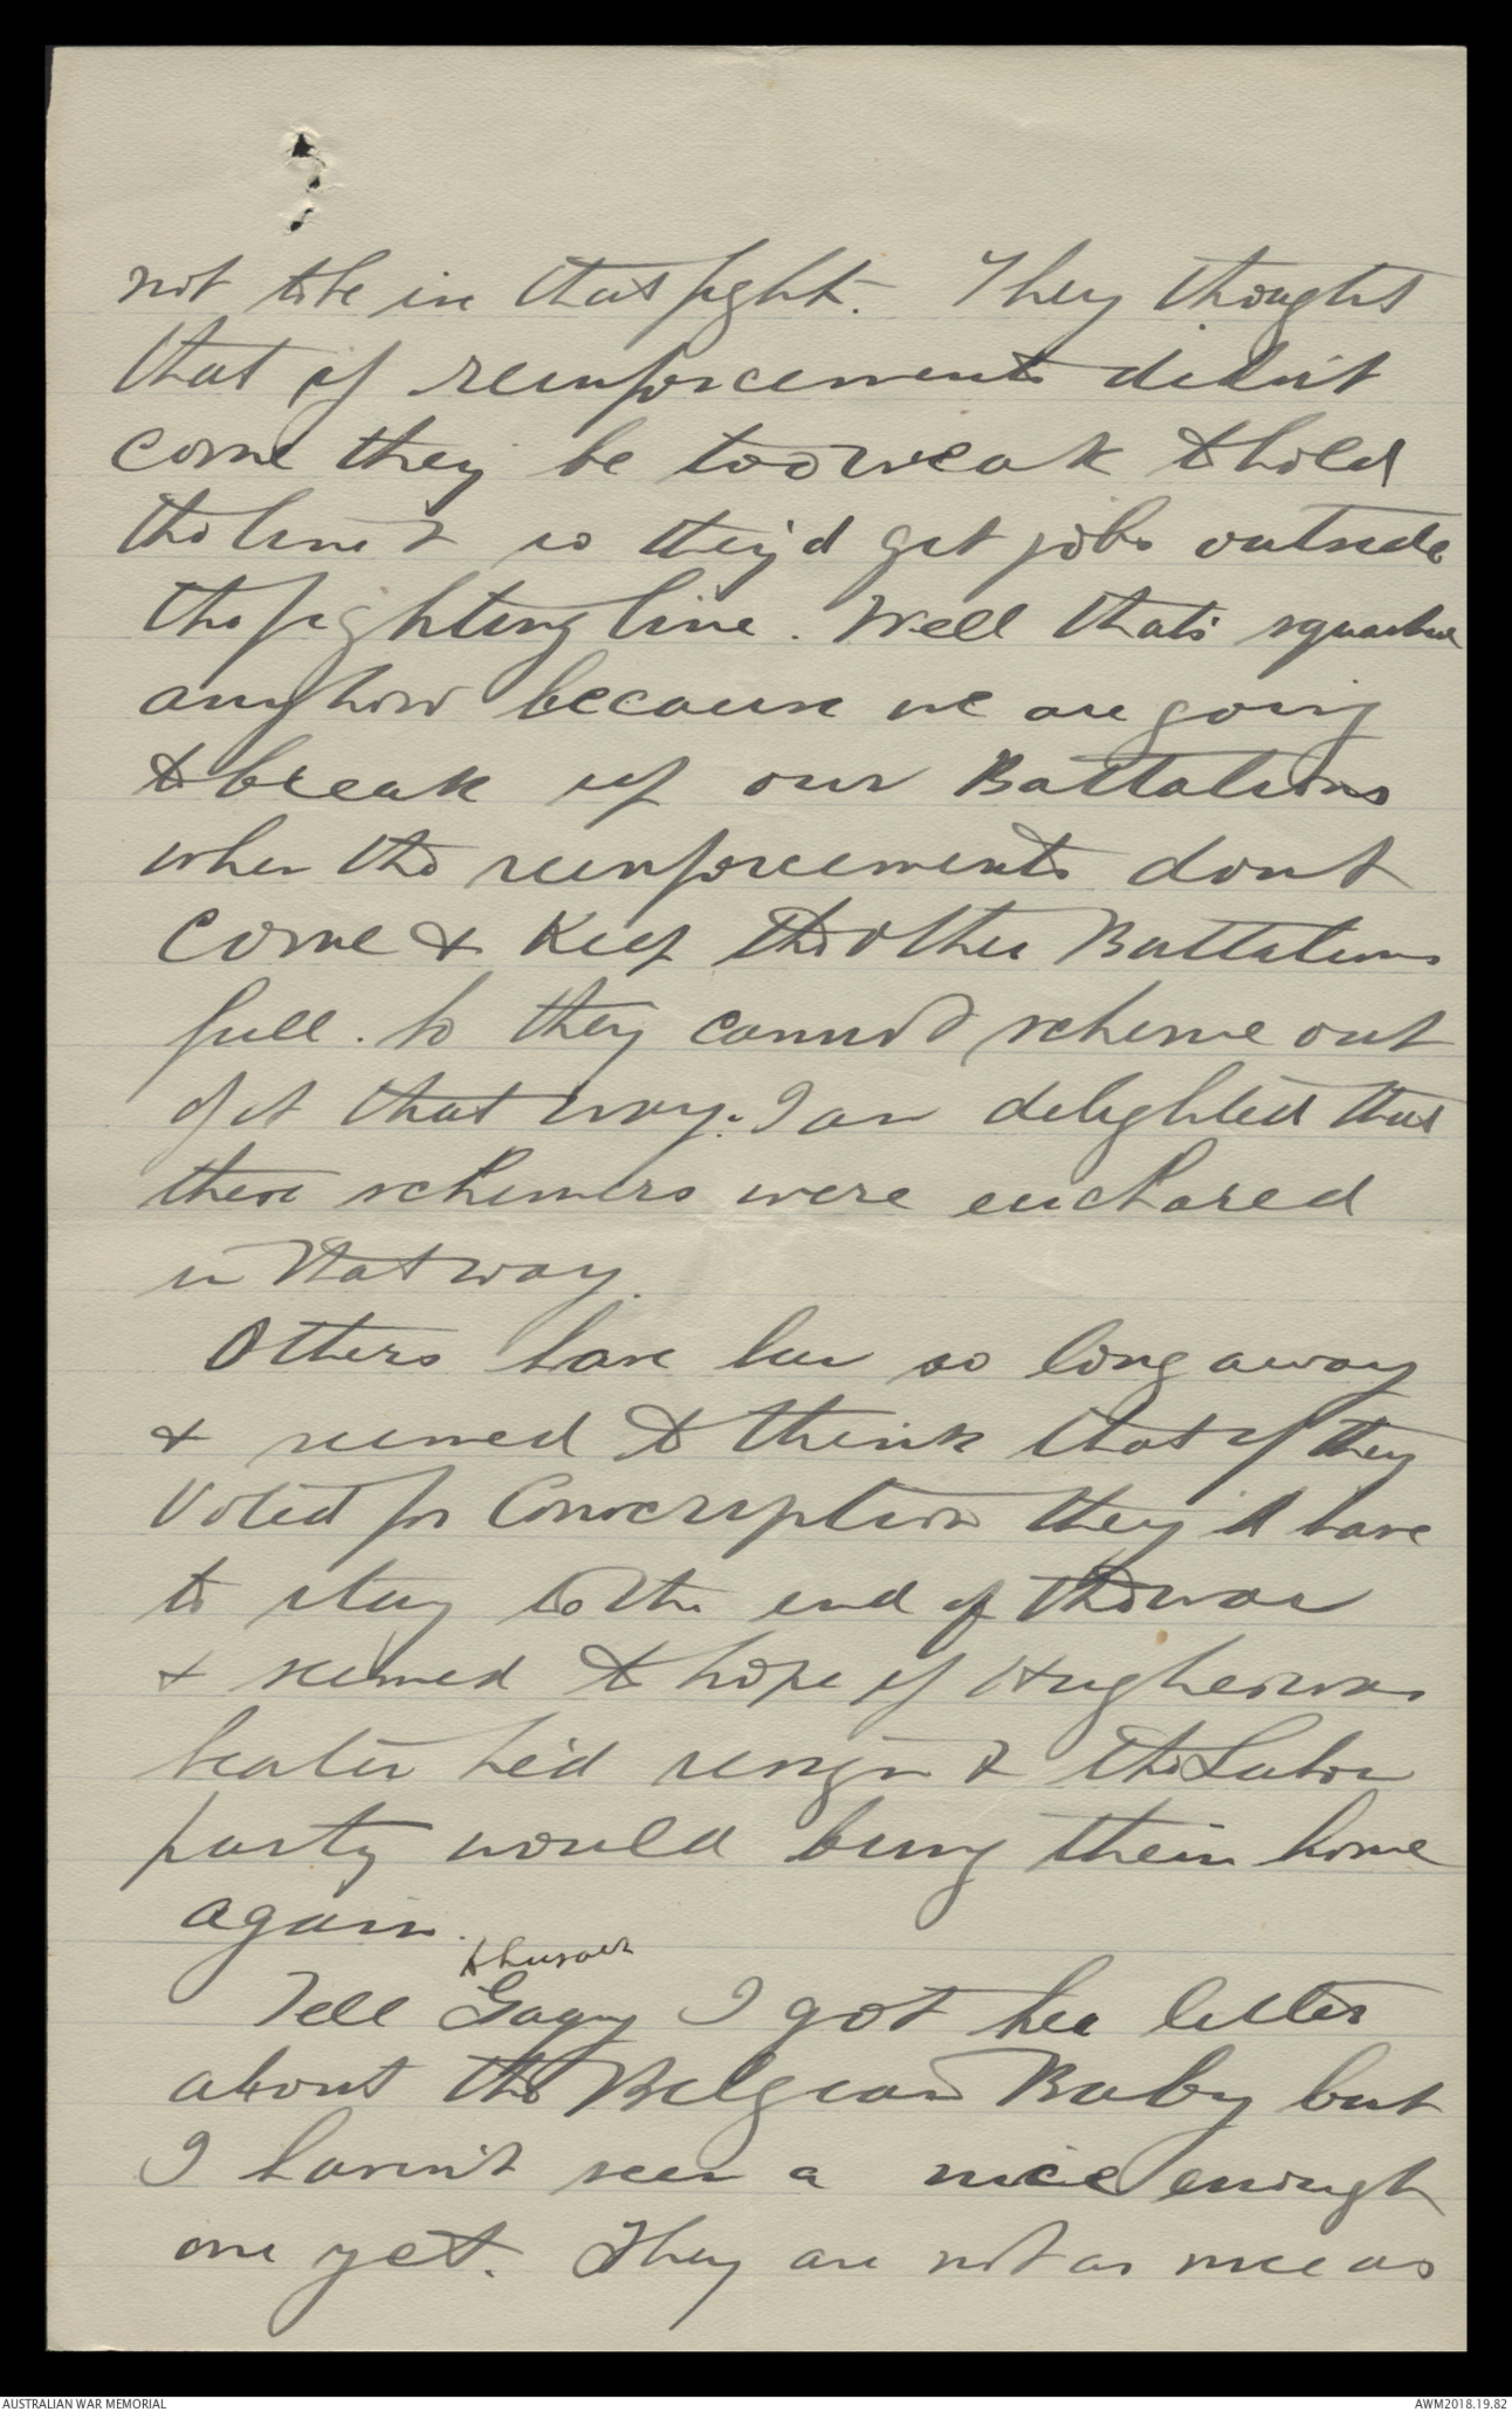 not to be in that fight. They thought
that if reinforcements didn't
come they be too weak to hold
the line & so they'd get jobs outside
the fighting line. Well that's squashed
anyhow because we are going
to break up our Battalions
when the reinforcements dont
come & keep the other Battalions
full. So they cannot scheme out
of it that way. I am delighted that
these schemers were euchared
in that way.
Others have been so long away
& seemed to think that if they
voted for Conscription they'd have
to stay to the end of the war
& seemed to hope if Hughes was
beaten he'd resign & the Labor
party would bring them home
again.
Tell Gagy I got her letter
about the Belgian Baby but
I haven't seen a nice enough
one yet. They are not as nice as
AUSTRALIAN WAR MEMORIAL
AWM2018.19.82